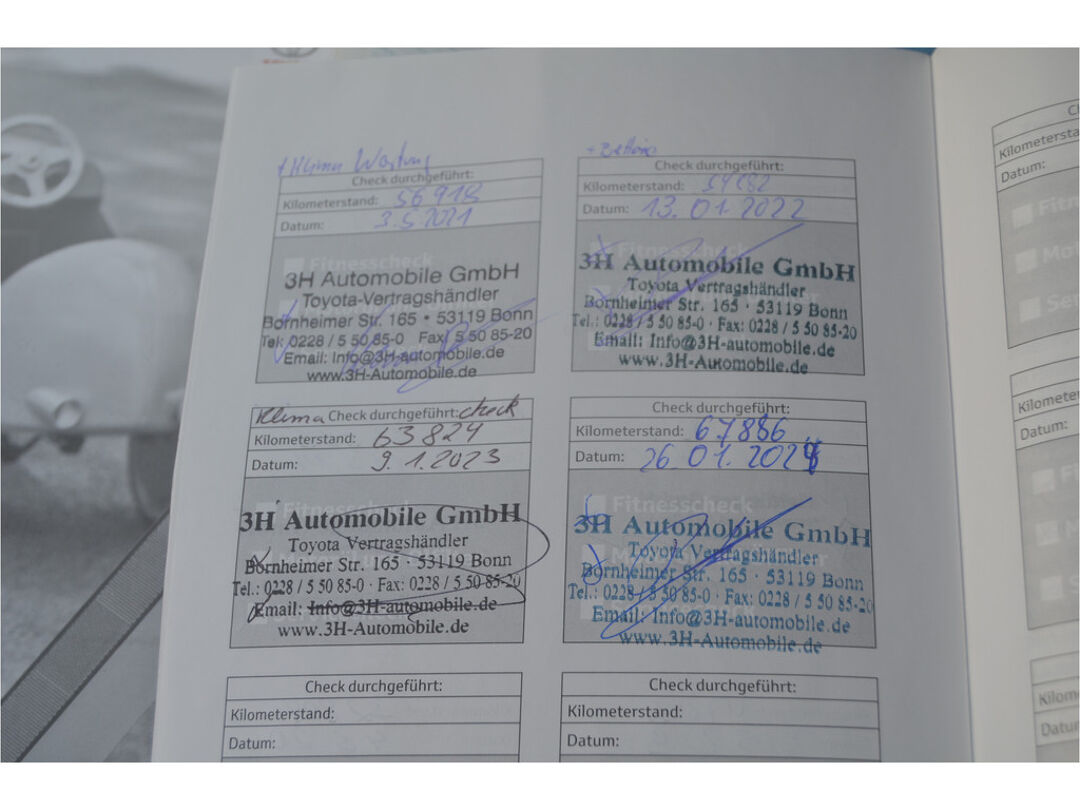 + Klima Wartung
Check durchgeführt:
Kilometerstand: 56918
Datum: 3.5.2021
Fitnesscheck
3H Automobile GmbH
Toyota-Vertragshändler
Bornheimer Str. 165 • 53119 Bonn
Tel: 0228 / 5 50 85-0 Fax: 0228 / 5 50 85-20
Email: Info@3H-automobile.de
www.3H-Automobile.de
Check durchgeführt:
Kilometerstand:
Datum: 13.01.2022
Fitnesscheck
3H Automobile GmbH
Toyota Vertragshändler
Bornheimer Str. 165 · 53119 Bonn
Tel.: 0228 / 5 50 85-0 · Fax: 0228 / 5 50 85-20
Email: Info@3H-automobile.de
www.3H-Automobile.de
Klima Check durchgeführt: check
Kilometerstand: 63824
Datum: 9.1.2023
3H Automobile GmbH
Toyota Vertragshändler
Bornheimer Str. 165 · 53119 Bonn
Tel.: 0228 / 5 50 85-0 · Fax: 0228 / 5 50 85-20
Email: Info@3H-automobile.de
www.3H-Automobile.de
Check durchgeführt:
Kilometerstand: 67886
Datum: 26 01.2024
Fitnesscheck
3H Automobile GmbH
Toyota Vertragshändler
Bornheimer Str. 165 · 53119 Bonn
Tel.: 0228 / 5 50 85-0 · Fax: 0228 / 5 50 85-20
Email: Info@3H-automobile.de
www.3H-Automobile.de
Check durchgeführt:
Kilometerstand:
Datum:
Check durchgeführt:
Kilometerstand:
Datum:
Kilometersta
Datum:
Kilometer
Datum:
Kilom
Datu